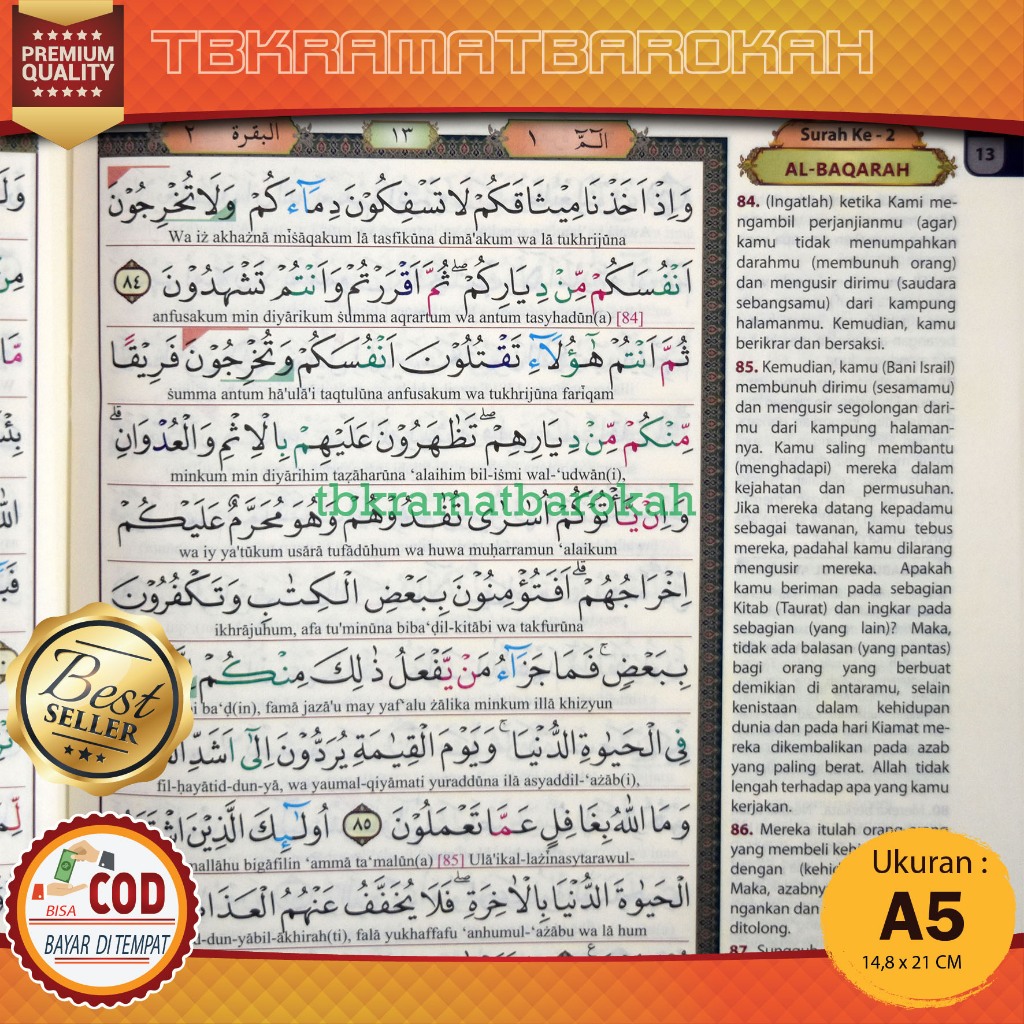 PREMIUM
QUALITY
TBKRAMATBAROKAH
البقرة ٢
١٣
الٓمّٓ ١
Surah Ke - 2
13
AL-BAQARAH
وَاِذْ اَخَذْنَا مِيْثَاقَكُمْ لَا تَسْفِكُوْنَ دِمَاۤءَكُمْ وَلَا تُخْرِجُوْنَ
Wa iż akhażnā miṡāqakum lā tasfikūna dimā'akum wa lā tukhrijūna
اَنْفُسَكُمْ مِّنْ دِيَارِكُمْۖ ثُمَّ اَقْرَرْتُمْ وَاَنْتُمْ تَشْهَدُوْنَ ٨٤
anfusakum min diyārikum ṡumma aqrartum wa antum tasyhadūn(a) [84]
ثُمَّ اَنْتُمْ هٰٓؤُلَاۤءِ تَقْتُلُوْنَ اَنْفُسَكُمْ وَتُخْرِجُوْنَ فَرِيْقًا
ṡumma antum hā'ulā'i taqtulūna anfusakum wa tukhrijūna farīqam
مِّنْكُمْ مِّنْ دِيَارِهِمْۖ تَظٰهَرُوْنَ عَلَيْهِمْ بِالْاِثْمِ وَالْعُدْوَانِۗ
minkum min diyārihim taẓāharūna ‘alaihim bil-iṡmi wal-‘udwān(i),
tbkramatbarokah
وَاِنْ يَّأْتُوْكُمْ اُسٰرٰى تُفٰدُوْهُمْ وَهُوَ مُحَرَّمٌ عَلَيْكُمْ
wa iy ya'tūkum usārā tufādūhum wa huwa muḥarramun ‘alaikum
اِخْرَاجُهُمْۗ اَفَتُؤْمِنُوْنَ بِبَعْضِ الْكِتٰبِ وَتَكْفُرُوْنَ
ikhrājuhum, afa tu'minūna biba‘ḍil-kitābi wa takfurūna
بِبَعْضٍۚ فَمَا جَزَاۤءُ مَنْ يَّفْعَلُ ذٰلِكَ مِنْكُمْ
ba‘ḍ(in), famā jazā'u may yaf‘alu żālika minkum illā khizyun
فِى الْحَيٰوةِ الدُّنْيَاۚ وَيَوْمَ الْقِيٰمَةِ يُرَدُّوْنَ اِلٰٓى اَشَدِّ
fil-ḥayātid-dun-yā, wa yaumal-qiyāmati yuraddūna ilā asyaddil-‘ażāb(i),
وَمَا اللّٰهُ بِغَافِلٍ عَمَّا تَعْمَلُوْنَ ٨٥ اُولٰۤىِٕكَ الَّذِيْنَ
mallāhu bigāfilin ‘ammā ta‘malūn(a) [85] Ulā'ikal-lażīnasytarawul-
الْحَيٰوةَ الدُّنْيَا بِالْاٰخِرَةِۖ فَلَا يُخَفَّفُ عَنْهُمُ الْعَذَا
d-dun-yābil-ākhirah(ti), falā yukhaffafu ‘anhumul-‘ażābu wa lā hum
84. (Ingatlah) ketika Kami me-
ngambil perjanjianmu (agar)
kamu tidak menumpahkan
darahmu (membunuh orang)
dan mengusir dirimu (saudara
sebangsamu) dari kampung
halamanmu. Kemudian, kamu
berikrar dan bersaksi.
85. Kemudian, kamu (Bani Israil)
membunuh dirimu (sesamamu)
dan mengusir segolongan dari-
mu dari kampung halaman-
nya. Kamu saling membantu
(menghadapi) mereka dalam
kejahatan dan permusuhan.
Jika mereka datang kepadamu
sebagai tawanan, kamu tebus
mereka, padahal kamu dilarang
mengusir mereka. Apakah
kamu beriman pada sebagian
Kitab (Taurat) dan ingkar pada
sebagian (yang lain)? Maka,
tidak ada balasan (yang pantas)
bagi orang yang berbuat
demikian di antaramu, selain
kenistaan dalam kehidupan
dunia dan pada hari Kiamat me-
reka dikembalikan pada azab
yang paling berat. Allah tidak
lengah terhadap apa yang kamu
kerjakan.
86. Mereka itulah orang
yang membeli
dengan
Maka, azabny
ngankan dan
ditolong.
87.
Best
SELLER
BISA COD
BAYAR DI TEMPAT
Ukuran :
A5
14,8 x 21 CM